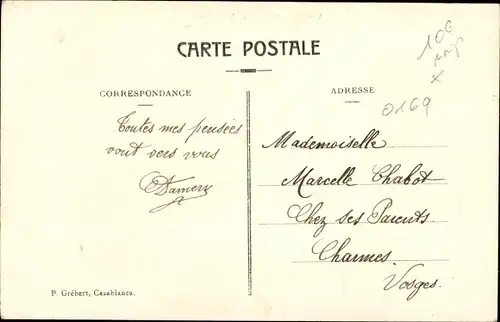 CARTE POSTALE
CORRESPONDANCE
ADRESSE
10€
0169
Toutes mes pensées
vont vers vous
Mademoiselle
Marcelle Chabot
Chez ses Parents
Charmes
Vosges.
P. Grébert, Casablanca.